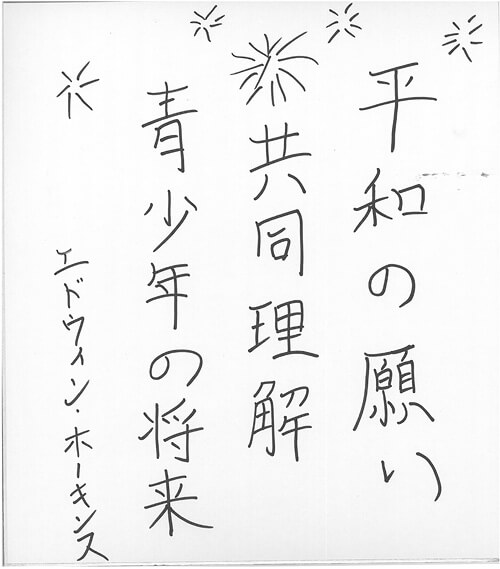 平和の願い
共同理解
青少年の将来
エドウィン・ホーキンス